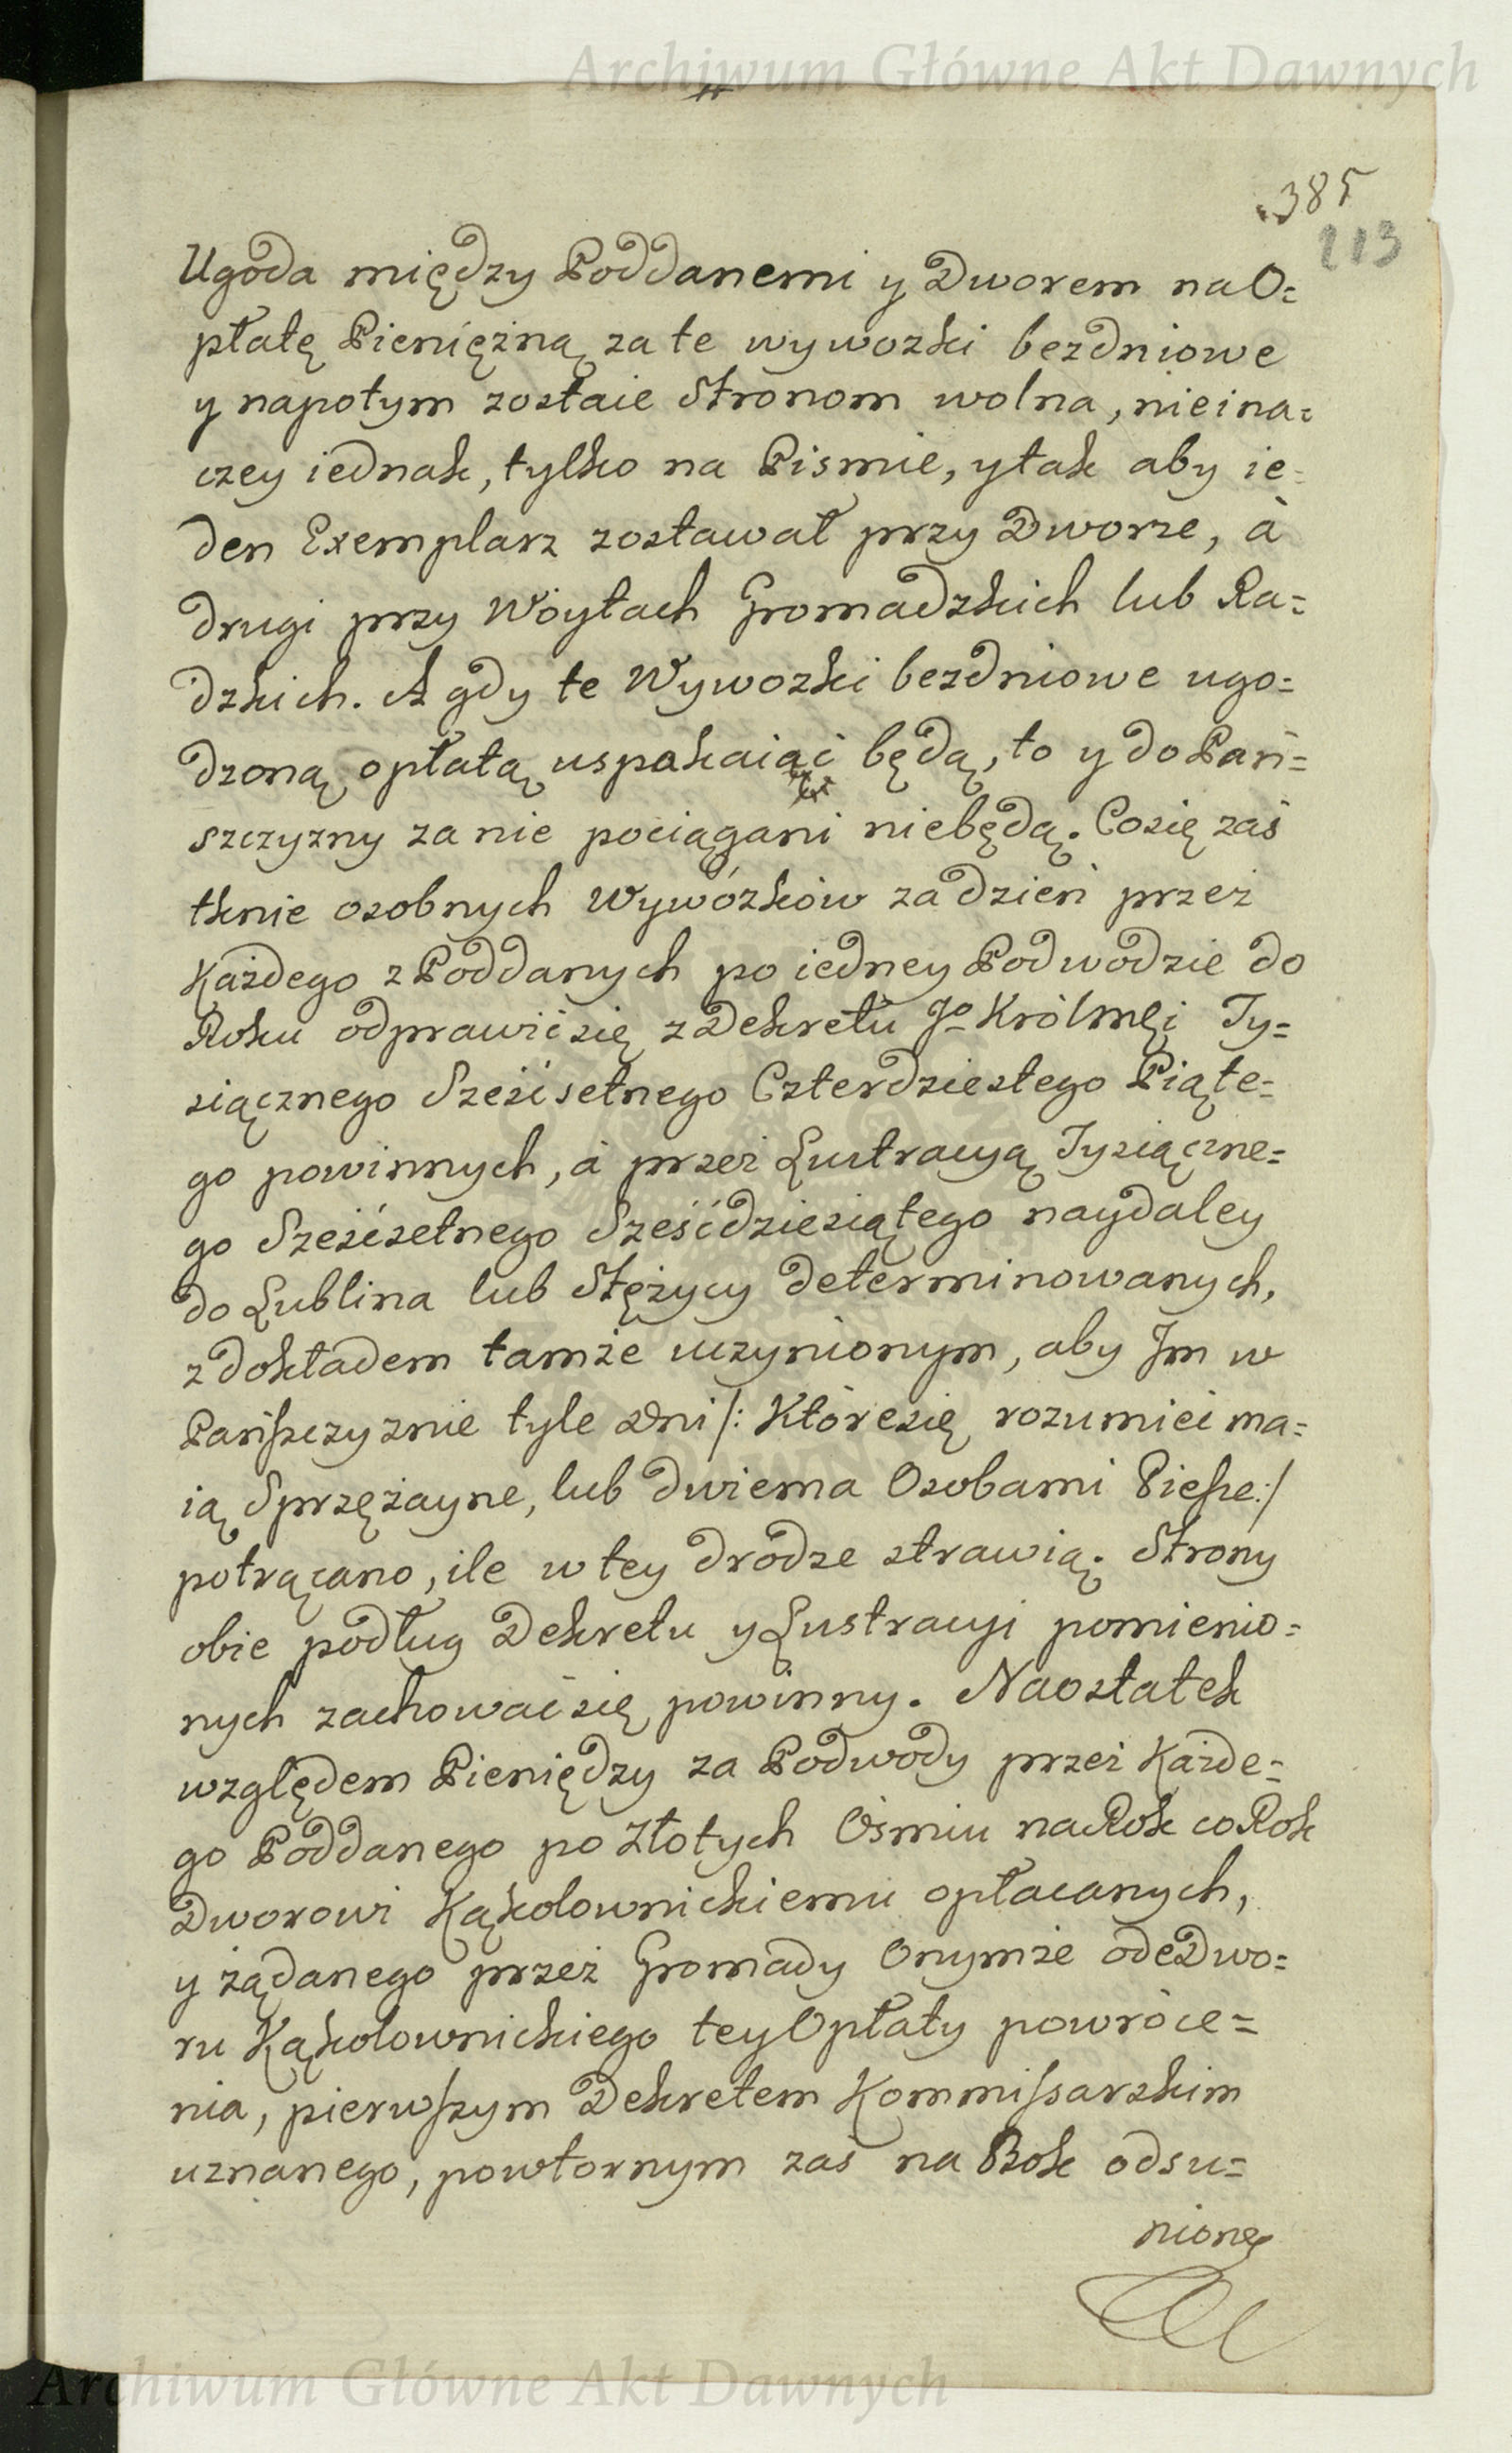 Archiwum Główne Akt Dawnych
385
213
Ugoda między Poddanemi y Dworem na O=
płatę Pieniężną za te wywozki bezdniowe
y napotym zostaie Stronom wolna, nieina=
czey iednak, tylko na Pismie, y tak aby ie=
den Exemplarz zostawał przy Dworze, à
drugi przy Woytach Gromadzkich lub Ra=
dzkich. A gdy te Wywozki bezdniowe ugo=
dzoną opłatą uspakaiać będą, to y do Pań=
szczyzny za nie pociągani niebędą. Co się zaś
tknie osobnych Wywózków za dzień przez
Każdego z Poddanych po iedney Podwodzie do
Roku odprawić się z Dekretu Jo Królmći Ty=
siącznego Sześćsetnego Czterdziestego Piąte=
go powinnych, à przez Lustracyą Tysiączne=
go Sześćsetnego Sześćdziesiątego naydaley
do Lublina lub Stężycy determinowanych,
z dokładem tamże uczynionym, aby Jm w
Pańszczyznie tyle Dni /: Które się rozumieć ma=
ią Sprzężayne, lub dwiema Osobami Piesze :/
potrącano, ile w tey drodze strawią. Strony
obie podług Dekretu y Lustracyi pomienio=
nych zachować się powinny. Naostatek
względem Pieniędzy za Podwody przez Każde=
go Poddanego po Złotych Ośmiu na Rok co Rok
Dworowi Kąkolownickiemu opłacanych,
y żądanego przez Gromady Onymże ode Dwo=
ru Kąkolownickiego tey Opłaty powróce=
nia, pierwszym Dekretem Kommissarskim
uznanego, powtornym zaś na Bok odsu=
nione
Archiwum Główne Akt Dawnych